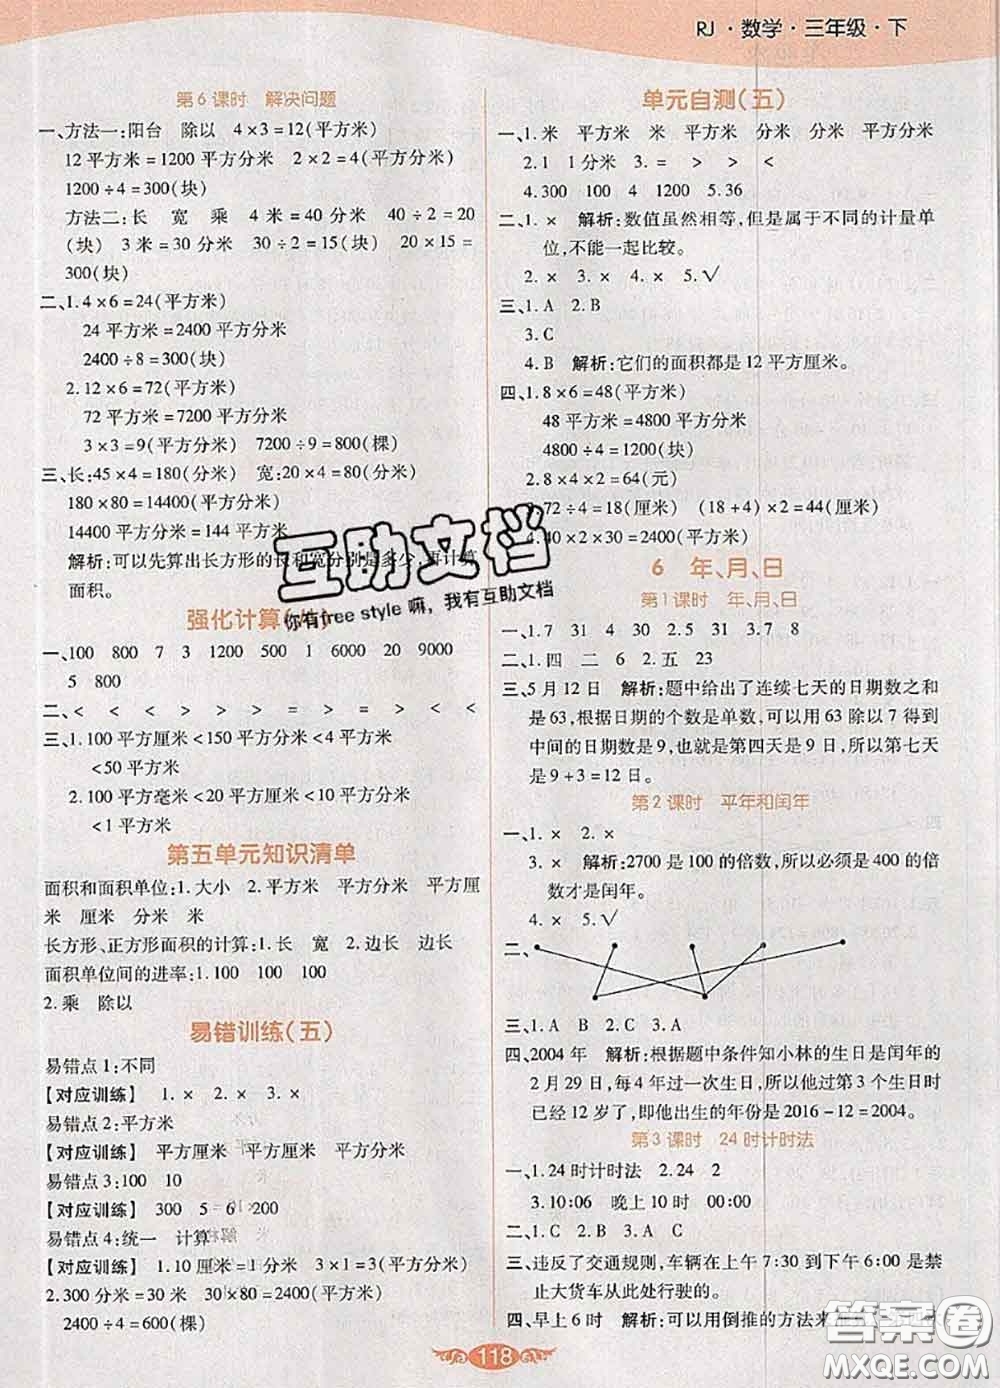 RJ·数学·三年级·下
第6课时 解决问题
一、方法一:阳台 除以 4×3=12(平方米)
12平方米=1200平方分米 2×2=4(平方分米)
1200÷4=300(块)
方法二:长 宽 乘 4米=40分米 40÷2=20
(块) 3米=30分米 30÷2=15(块) 20×15=
300(块)
二、1.4×6=24(平方米)
24平方米=2400平方分米
2400÷8=300(块)
2.12×6=72(平方米)
72平方米=7200平方分米
3×3=9(平方分米) 7200÷9=800(棵)
三、长:45×4=180(分米) 宽:20×4=80(分米)
180×80=14400(平方分米)
14400平方分米=144平方米
解析:可以先算出长方形的长和宽分别是多少,再计算
面积。
强化计算
一、100 800 7 3 1200 500 1 6000 20 9000
5 800
二、< < < > > > = > = > < <
三、1.100平方厘米<150平方分米<4平方米
<50平方米
2.100平方毫米<20平方厘米<10平方分米
<1平方米
第五单元知识清单
面积和面积单位:1.大小 2.平方米 平方分米 平方厘
米 厘米 分米 米
长方形、正方形面积的计算:1.长 宽 2.边长 边长
面积单位间的进率:1.100 100 100
2.乘 除以
易错训练(五)
易错点1:不同
【对应训练】 1.× 2.× 3.×
易错点2:平方米
【对应训练】 平方厘米 平方厘米 平方分米
易错点3:100 10
【对应训练】 300 5 6 200
易错点4:统一 计算
【对应训练】 1.10厘米=1分米 3×1=3(平方分米)
2.300分米=30米 30×80=2400(平方米)
2400÷4=600(棵)
单元自测(五)
一、1.米 平方米 米 平方米 分米 分米 平方分米
2.1 1分米 3.= > > <
4.300 100 4 1600 5.36
二、1.× 解析:数值虽然相等,但是属于不同的计量单
位,不能一起比较。
2.× 3.× 4.× 5.√
三、1.A 2.B
3.C
4.B 解析:它们的面积都是12平方厘米。
四、1.8×6=48(平方米)
48平方米=4800平方分米
4800÷4=1200(块)
2.8×4×2=64(元)
72÷4=18(厘米) (18+4)×2=44(厘米)
4.40×2×30=2400(米)
6 年、月、日
第1课时 年、月、日
一、1.7 31 4 30 2.5 31 3.7 8
二、1.四 二 6 2.五 23
三、5月12日 解析:题中给出了连续七天的日期数之和
是63,根据日期的个数是单数,可以用63除以7得到
中间的日期数是9,也就是第四天是9日,所以第七天
是9+3=12日。
第2课时 平年和闰年
一、1.× 2.×
3.× 解析:2700是100的倍数,所以必须是400的倍
数才是闰年。
4.× 5.√
二、
三、1.A B 2.C 3.A
四、2004年 解析:根据题中条件知小林的生日是闰年的
2月29日,每4年过一次生日,所以过第3个生日时
已经12岁了,即他出生的年份是2016-12=2004。
第3课时 24时计时法
一、1.24时计时法 2.24 2
3.10:06 晚上10时 00:00
二、1.C 2.C 3.A C
三、违反了交通规则,车辆在上午7:30到下午6:00是禁
止大货车从此处行驶的。
四、早上6时 解析:可以用倒推的方法来
118
互助文档
你有free style嘛,我有互助文档
答案圈
MXQE.COM